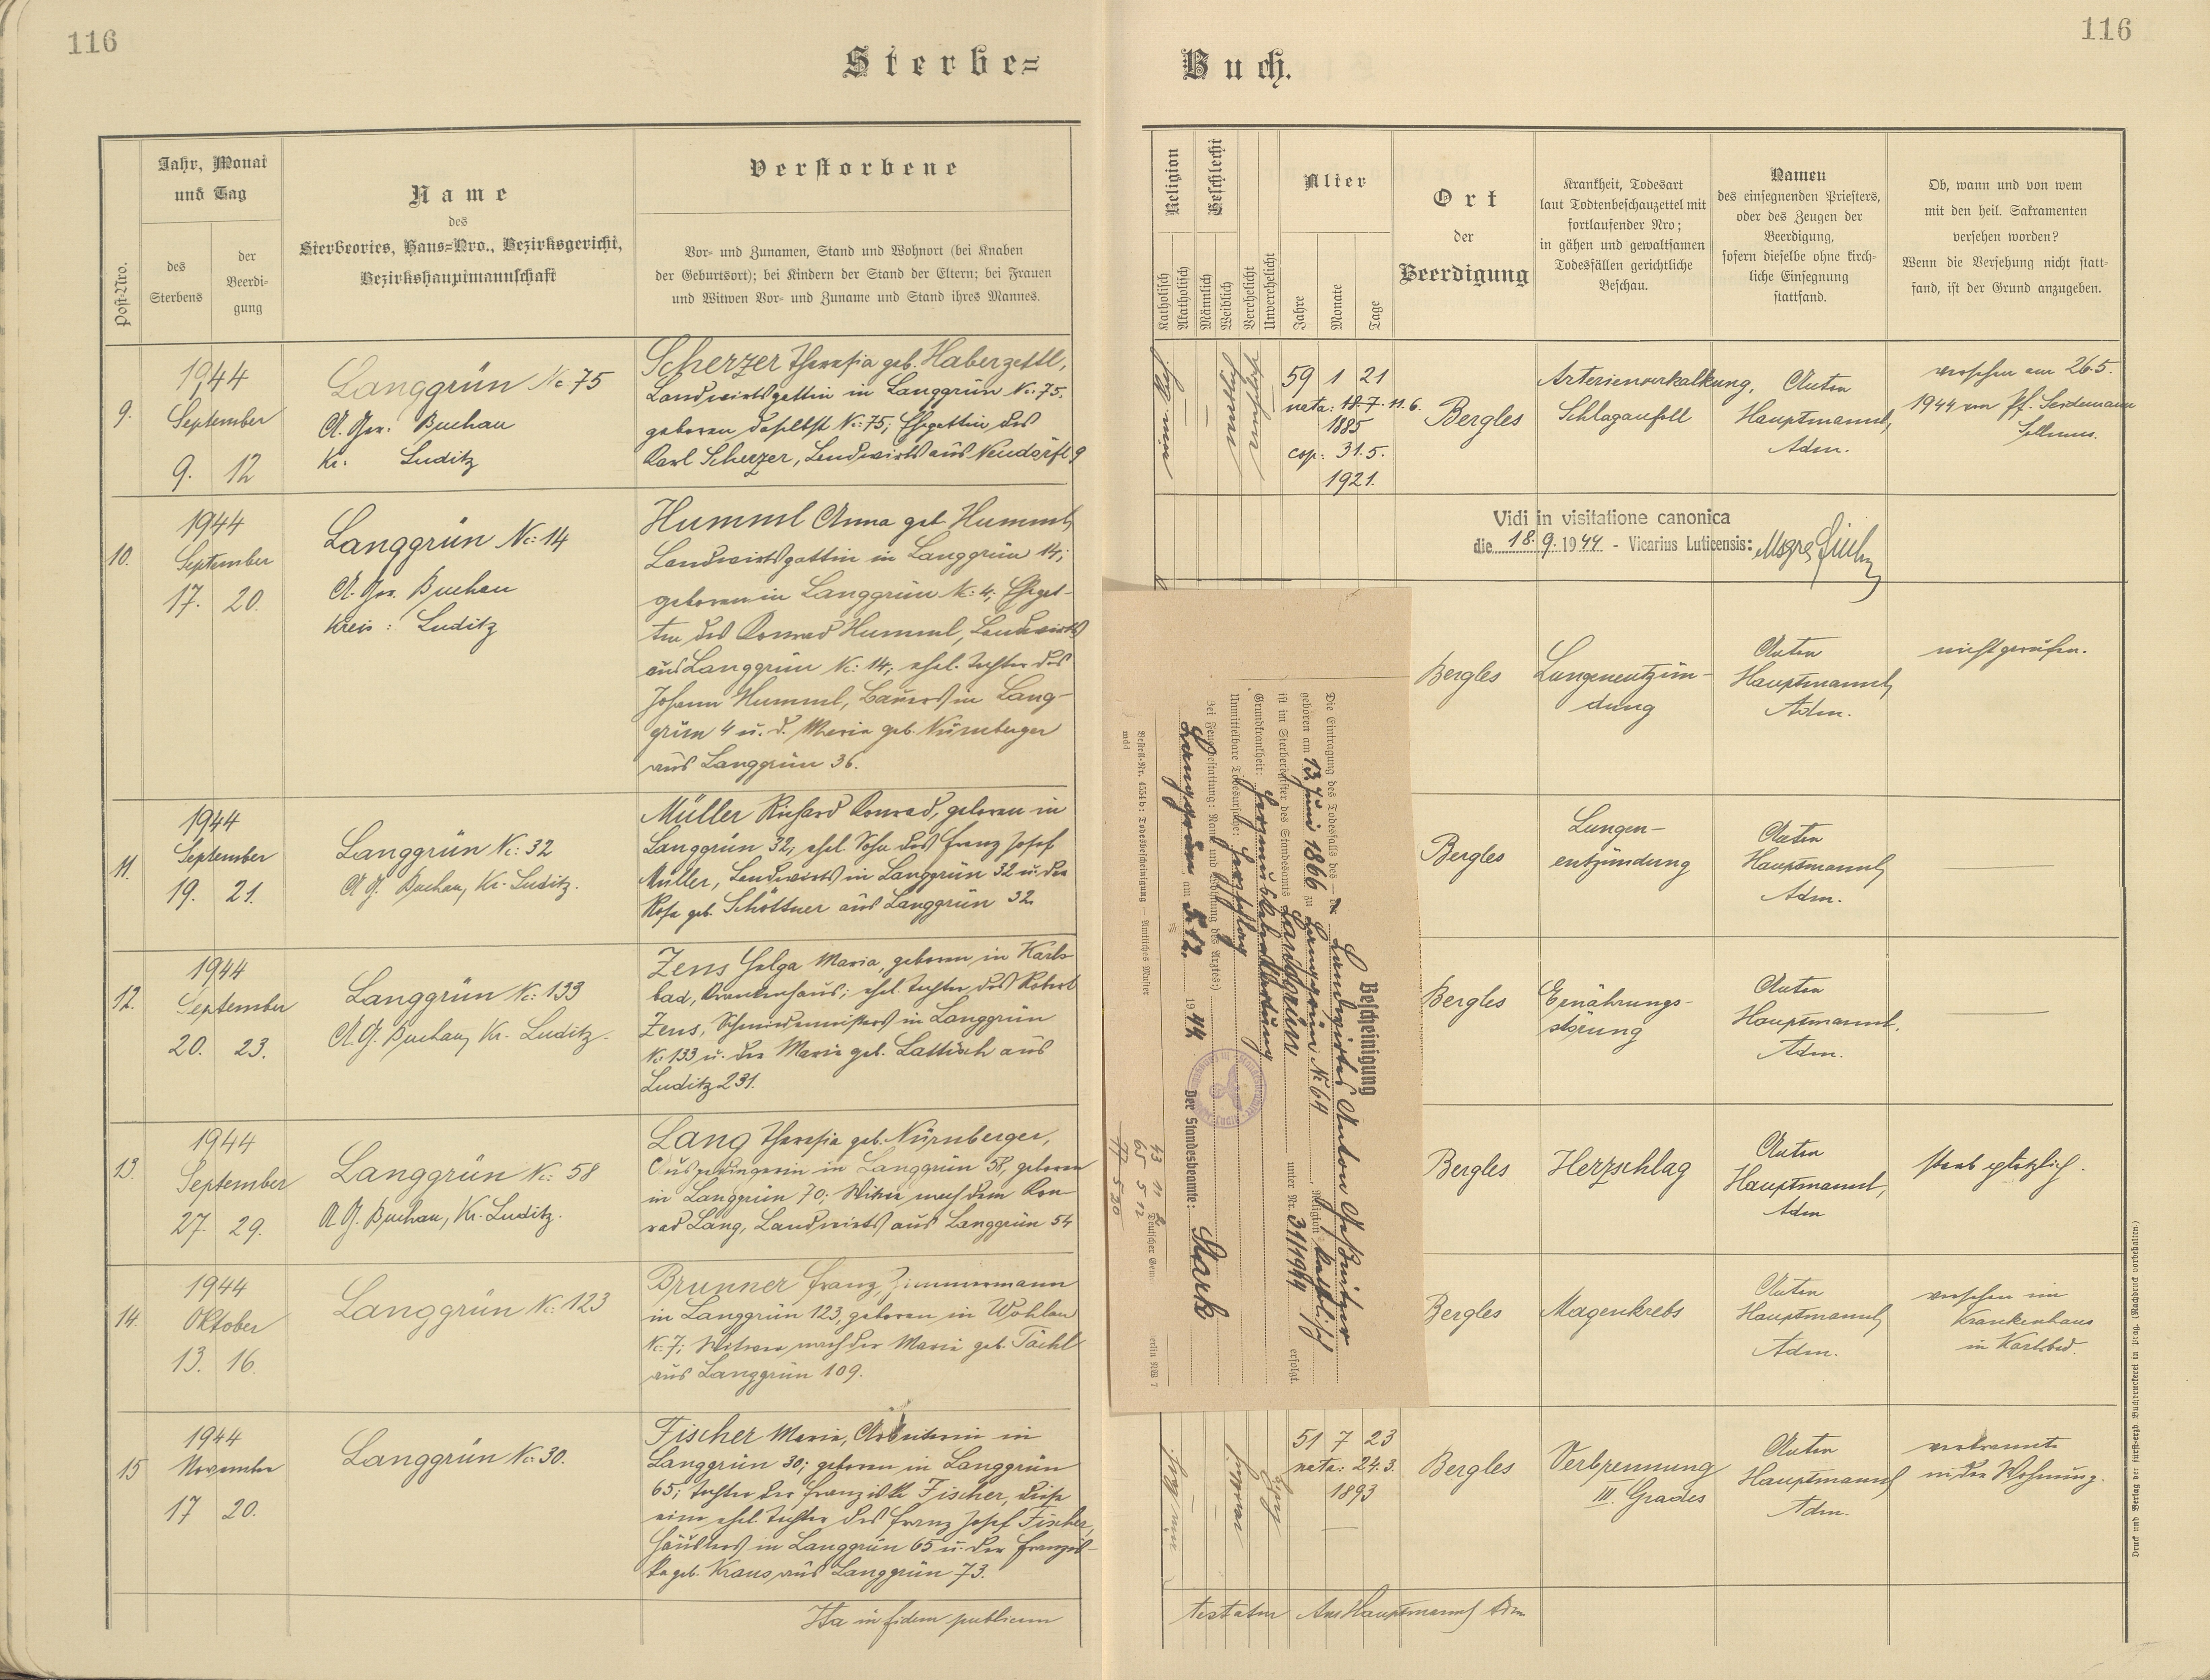 116
116
Sterbe=
Buch.
Post-Nro.
Jahr, Monat
und Tag
des
Sterbens
der
Beerdi-
gung
Name
des
Sterbeortes, Haus=Nro., Bezirksgericht,
Bezirkshauptmannschaft
Verstorbene
Vor- und Zunamen, Stand und Wohnort (bei Knaben
der Geburtsort); bei Kindern der Stand der Eltern; bei Frauen
und Witwen Vor- und Zuname und Stand ihres Mannes.
Religion
Katholisch
Akatholisch
Geschlecht
Männlich
Weiblich
Verehelicht
Unverehelicht
Alter
Jahre
Monate
Tage
Ort
der
Beerdigung
Krankheit, Todesart
laut Todtenbeschauzettel mit
fortlaufender Nro;
in gähen und gewaltsamen
Todesfällen gerichtliche
Beschau.
Namen
des einsegnenden Priesters,
oder des Zeugen der
Beerdigung,
sofern dieselbe ohne kirch-
liche Einsegnung
stattfand.
Ob, wann und von wem
mit den heil. Sakramenten
versehen worden?
Wenn die Versehung nicht statt-
fand, ist der Grund anzugeben.
9.
1944
September
9. 12
Langgrün Nc 75
A. Ger. Buchau
Kr. Luditz
Scherzer Theresia geb. Haberzettl,
Landwirtsgattin in Langgrün Nc: 75,
geboren daselbst Nc: 75; Ehegattin des
Karl Scherzer, Landwirts aus Neudörfl 9
59 1 21
nata: 18.7. 11.6.
1885
cop: 31.5.
1921.
Bergles
Arterienverkalkung,
Schlaganfall
Anton
Hauptmannl,
Adm.
versehen am 26.5.
1944 von Pf.
10.
1944
September
17. 20.
Langgrün Nc: 14
A. Ger. Buchau
Kreis: Luditz
Humml Anna geb Humml,
Landwirtsgattin in Langgrün 14;
geboren in Langgrün Nc: 4; Ehegat-
tin des Konrad Humml, Landwirts
aus Langgrün Nc: 14; ehel. Tochter des
Johann Humml, Bauers in Lang-
grün 4 u. d. Maria geb. Nürnberger
aus Langgrün 36.
Vidi in visitatione canonica
die 18.9.1944 - Vicarius Luticensis:
Bergles
Lungenentzün-
dung
Anton
Hauptmannl,
Adm.
nicht gerufen.
11.
1944
September
19. 21.
Langgrün Nc: 32
A. G. Buchau, Kr. Luditz.
Müller Richard Konrad, geboren in
Langgrün 32; ehel. Sohn des Franz Josef
Müller, Landwirts in Langgrün 32 u. der
Rosa geb. Schöttner aus Langgrün 32.
Bergles
Lungen-
entzündung
Anton
Hauptmannl,
Adm.
12.
1944
September
20. 23.
Langgrün Nc: 133
A. G. Buchau, Kr. Luditz.
Zens Helga Maria, geboren in Karls-
bad, Krankenhaus; ehel. Tochter des Robert
Zens, Schmiedemeisters in Langgrün
Nc: 133 u. der Maria geb. Lattisch aus
Luditz 231.
Bergles
Ernährungs-
störung
Anton
Hauptmannl,
Adm.
13.
1944
September
27. 29.
Langgrün Nc: 58
A. G. Buchau, Kr. Luditz.
Lang Theresia geb. Nürnberger,
Ausgedingerin in Langgrün 58, geboren
in Langgrün 70; Witwe nach dem Kon-
rad Lang, Landwirts aus Langgrün 54
Bergles
Herzschlag
Anton
Hauptmannl,
Adm
starb plötzlich.
14.
1944
Oktober
13. 16.
Langgrün Nc: 123
Brunner Franz, Zimmermann
in Langgrün 123, geboren in Wohlau
Nc: 7; Witwer nach der Maria geb. Tächl
aus Langgrün 109.
Bergles
Magenkrebs
Anton
Hauptmannl,
Adm.
versehen im
Krankenhaus
in Karlsbad.
15
1944
November
17 20.
Langgrün Nc: 30.
Fischer Maria, Arbeiterin in
Langgrün 30; geboren in Langgrün
65; Tochter der Franziska Fischer, diese
eine ehel. Tochter des Franz Josef Fischer,
Häuslers in Langgrün 65 u. der Franzis-
ka geb. Kraus aus Langgrün 73.
51 7 23
nata: 24.3.
1893
Bergles
Verbrennung
III. Grades
Anton
Hauptmannl
Adm.
verbrannte
in der Wohnung.
Ita in fidem publicam
testatur Ant Hauptmannl Adm
Bescheinigung
Die Eintragung des Todesfalls des Landwirtes Anton
geboren am 13. Juni 1866 zu Langgrün Nr 64, Religion katholisch
ist im Sterberegister des Standesamts Langgrün unter Nr. 31/1944 erfolgt.
Grundkrankheit:
Unmittelbare Todesursache: Herzschlag
Bei Feuerbestattung: Name und Wohnung des Arztes:
Langgrün am 5.12. 1944
Der Standesbeamte: Stark
Bestell-Nr. 4554b: Todesbescheinigung — Amtliches Muster
Druck und Verlag der fürst-erzb. Buchdruckerei in Prag. (Nachdruck vorbehalten.)